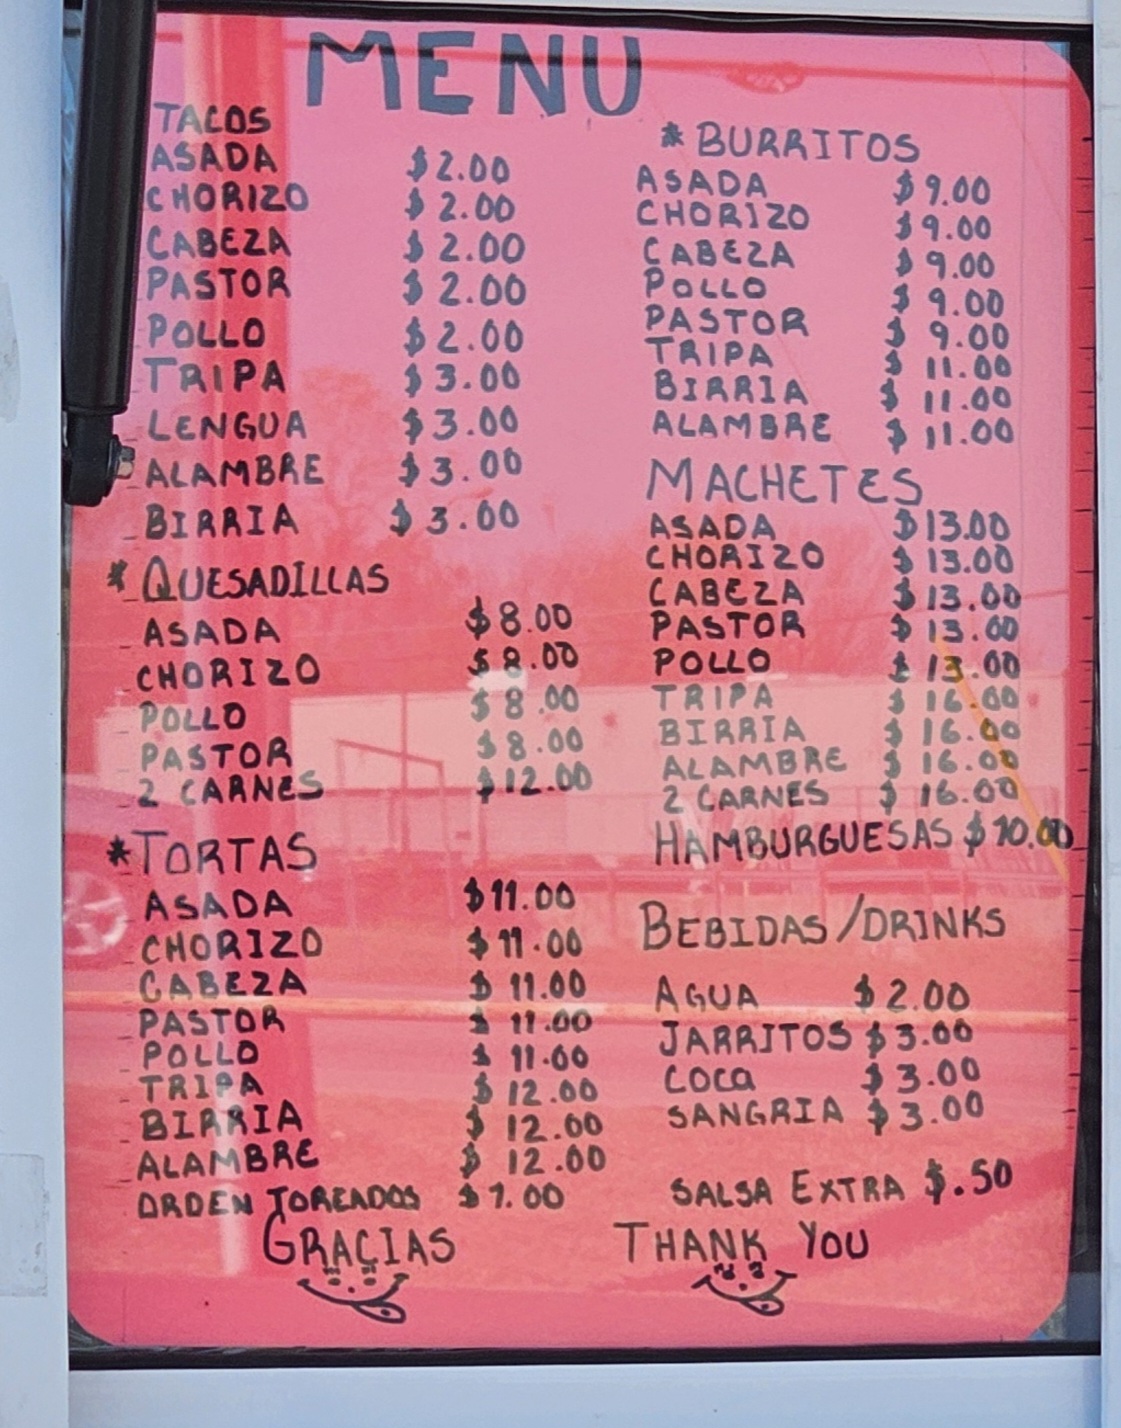 MENU
TACOS
ASADA $2.00
CHORIZO $2.00
CABEZA $2.00
PASTOR $2.00
POLLO $2.00
TRIPA $3.00
LENGUA $3.00
ALAMBRE $3.00
BIRRIA $3.00
* QUESADILLAS
ASADA $8.00
CHORIZO $8.00
POLLO $8.00
PASTOR $8.00
2 CARNES $12.00
*TORTAS
ASADA $11.00
CHORIZO $11.00
CABEZA $11.00
PASTOR $11.00
POLLO $11.00
TRIPA $12.00
BIRRIA $12.00
ALAMBRE $12.00
ORDEN TOREADOS $1.00
* BURRITOS
ASADA $9.00
CHORIZO $9.00
CABEZA $9.00
POLLO $9.00
PASTOR $9.00
TRIPA $11.00
BIRRIA $11.00
ALAMBRE $11.00
MACHETES
ASADA $13.00
CHORIZO $13.00
CABEZA $13.00
PASTOR $13.00
POLLO $13.00
TRIPA $16.00
BIRRIA $16.00
ALAMBRE $16.00
2 CARNES $16.00
HAMBURGUESAS $10.00
BEBIDAS/DRINKS
AGUA $2.00
JARRITOS $3.00
COCA $3.00
SANGRIA $3.00
SALSA EXTRA $.50
GRACIAS THANK YOU